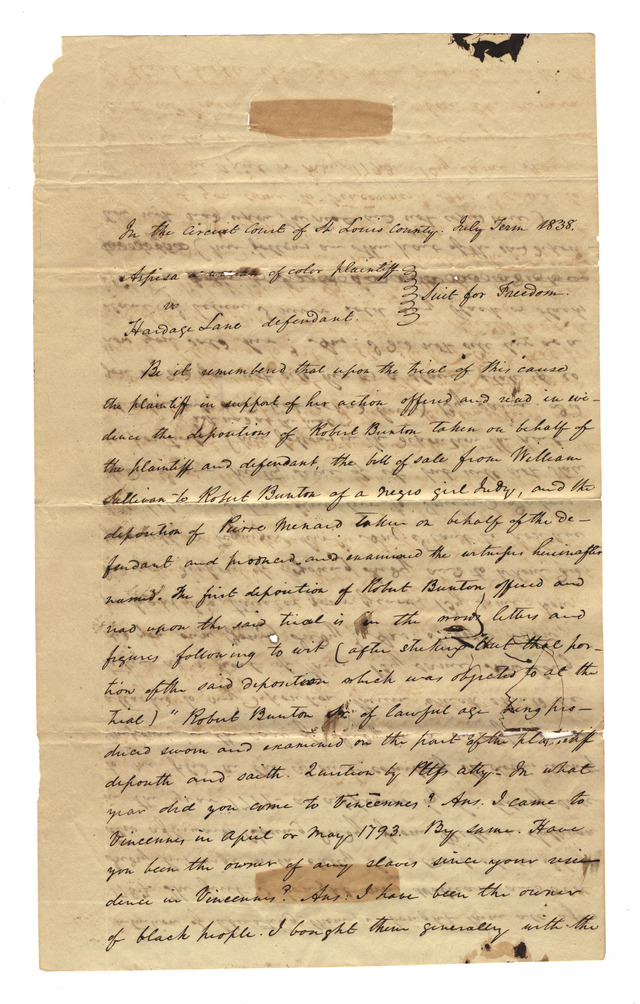 In the Circuit Court of St Louis County. July Term 1838.
Aspisa a woman of color plaintiff
vs
Suit for Freedom.
Hardage Lane defendant.
Be it remembered that upon the trial of this cause
the plaintiff in support of her action offered and read in evi-
dence the depositions of Robert Bunton taken on behalf of
the plaintiff and defendant, the bill of sale from William
Sullivan to Robert Bunton of a negro girl Judy, and the
deposition of Pierre Menard taken on behalf of the de-
fendant and produced and examined the witnesses hereinafter
named. The first deposition of Robert Bunton offered and
read upon the said trial is in the words letters and
figures following to wit (after striking out that por-
tion of the said deposition which was objected to at the
trial) " Robert Bunton Sr. of lawful age being pro-
duced sworn and examined on the part of the plaintiff
deposeth and saith. Question by Pltffs atty- In what
year did you come to Vincennes? Ans. I came to
Vincennes in April or May, 1793. By same. Have
you been the owner of any slaves since your resi
dence in Vincennes? Ans. I have been the owner
of black people. I bought them generally with the